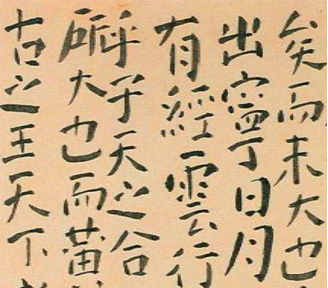 矣而未大也
出寧日月
有經雲行
乎子天之合
所大也而黄
古之王天下